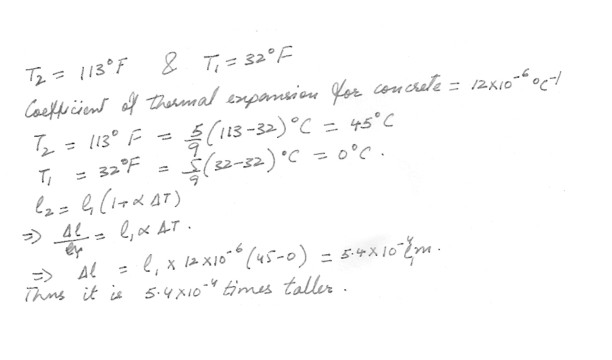 T₂ = 113°F & T₁ = 32°F
Coefficient of thermal expansion for concrete = 12x10⁻⁶ °C⁻¹
T₂ = 113° F = 5/9 (113-32) °C = 45°C
T₁ = 32°F = 5/9 (32-32) °C = 0°C.
l₂ = l₁ (1+α ΔT)
⇒ Δl = l₁ α ΔT.
⇒ Δl = l₁ x 12 x10⁻⁶ (45-0) = 5.4x10⁻⁴ l₁ m.
Thus it is 5.4x10⁻⁴ times taller.